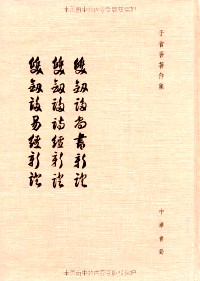 于省吾著作集
雙劍誃尚書新證
雙劍誃詩經新證
雙劍誃易經新證
中華書局